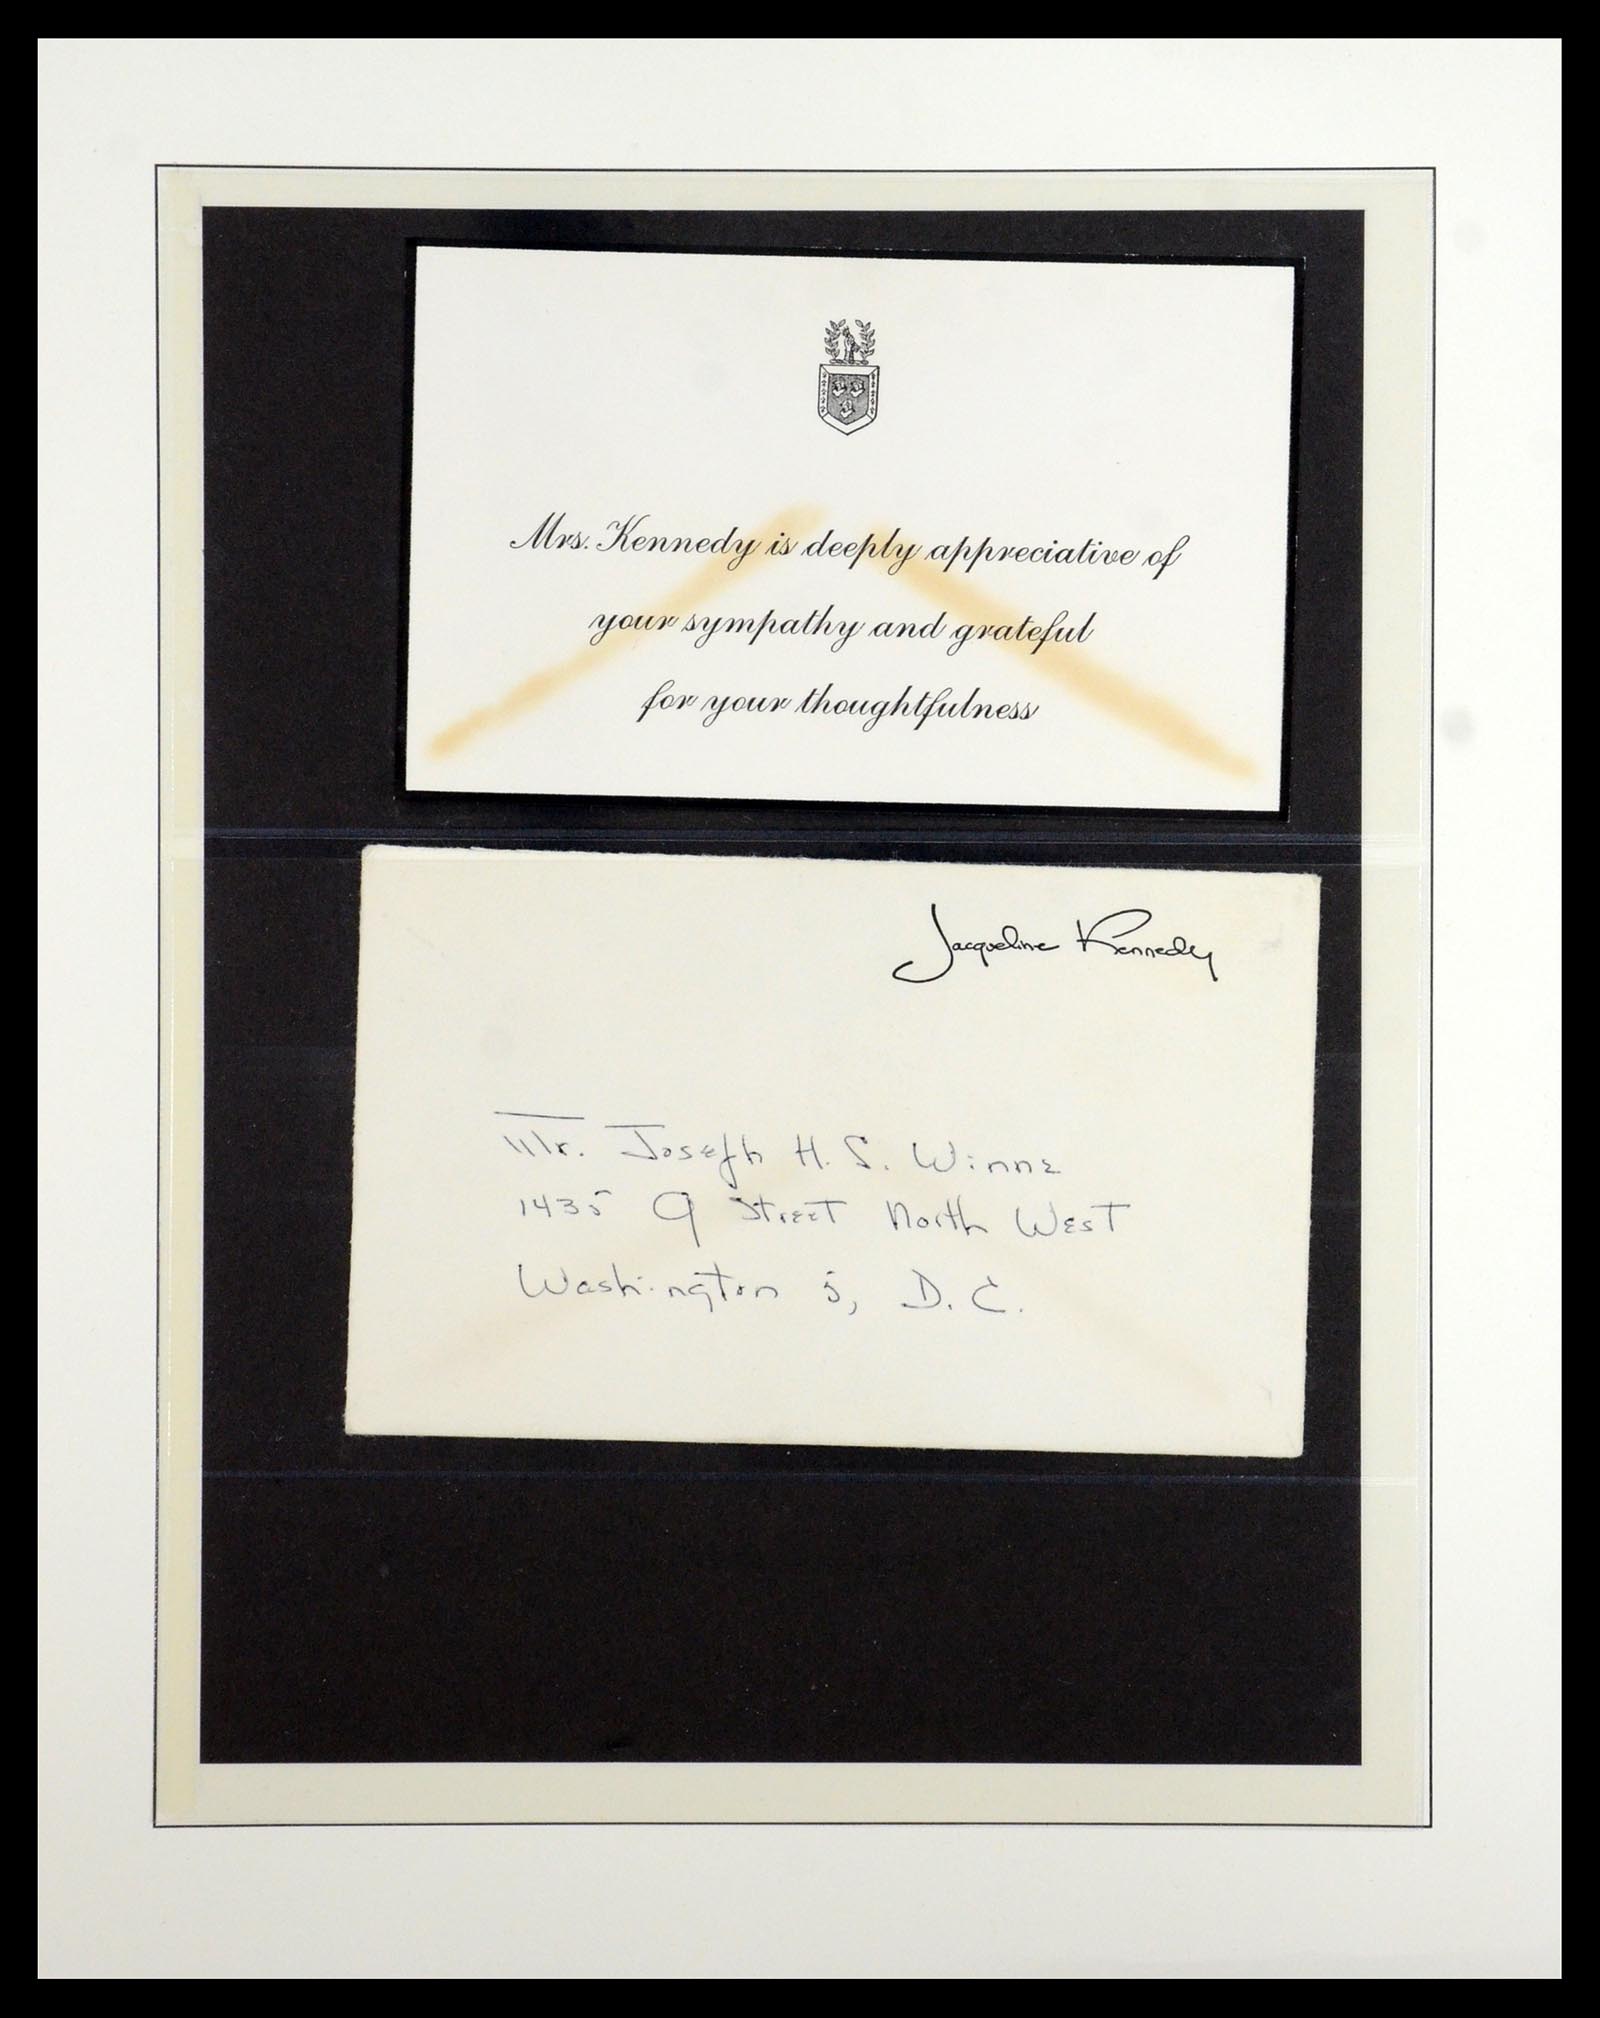 Mrs. Kennedy is deeply appreciative of
your sympathy and grateful
for your thoughtfulness
Jacqueline Kennedy
Mr. Joseph H. S. Winne
1435 Q Street North West
Washington 5, D. C.